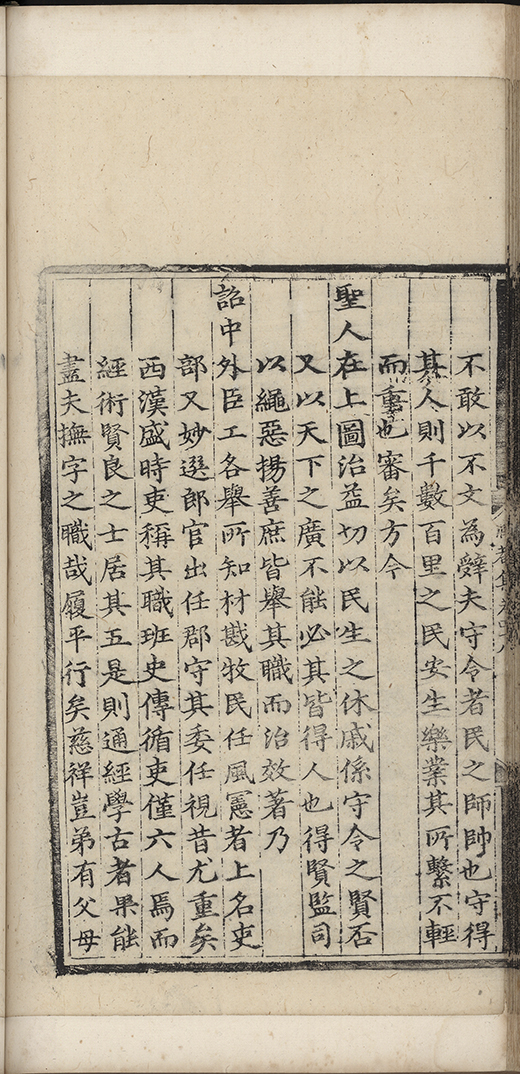 不敢以不文為辭夫守令者民之師帥也守得
其人則千數百里之民安生樂業其所繫不輕
而重也審矣方今
聖人在上圖治益切以民生之休戚係守令之賢否
又以天下之廣不能必其皆得人也得賢監司
以繩惡揚善庶皆舉其職而治效著乃
詔中外臣工各舉所知材戡牧民任風憲者上名吏
部又妙選郎官出任郡守其委任視昔尤重矣
西漢盛時吏稱其職班史傳循吏僅六人焉而
經術賢良之士居其五是則通經學古者果能
盡夫撫字之職哉履平行矣慈祥豈弟有父母